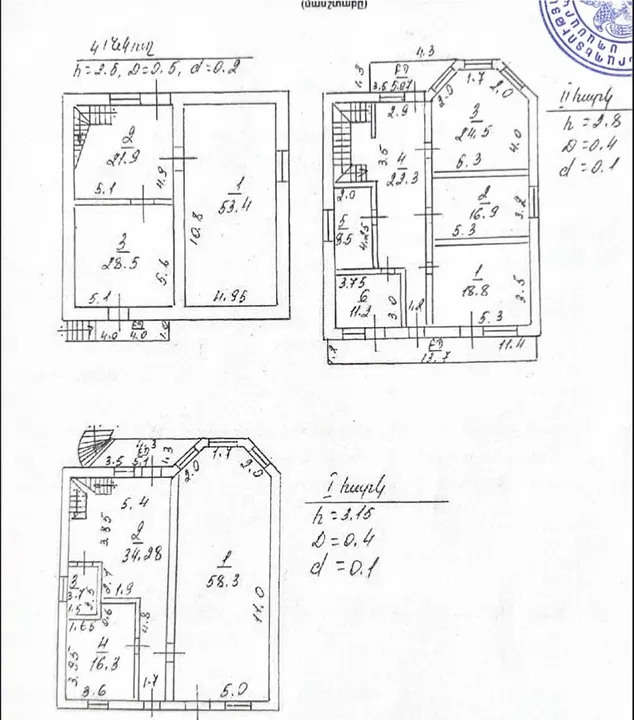 (մասշտաբը)
կ/նկուղ
h=2.8, D=0.5, d=0.2
2
21.9
5.1
4.9
1
53.4
10.8
4.95
3
28.5
5.6
5.1
4.0
4.0
1.0
4.3
1.3
3.5 5.07
2.9
2.0
1.7
2.0
3
24.5
6.3
4.0
3.5
4
22.3
2.0
5
8.5
4.25
2
16.9
5.3
3.2
3.75
6
11.2
3.0
1.2
1
18.8
3.5
5.3
11.4
13.7
II հարկ
h=2.8
D=0.4
d=0.1
3.5 5.1
1.3
2.0
1.7
2.0
5.4
3.85
2
34.28
1
58.3
11.0
5.0
3
3.7
1.5
2.5
1.9
1.65
0.6
4.8
4
16.3
3.95
3.6
1.7
I հարկ
h=3.15
D=0.4
d=0.1